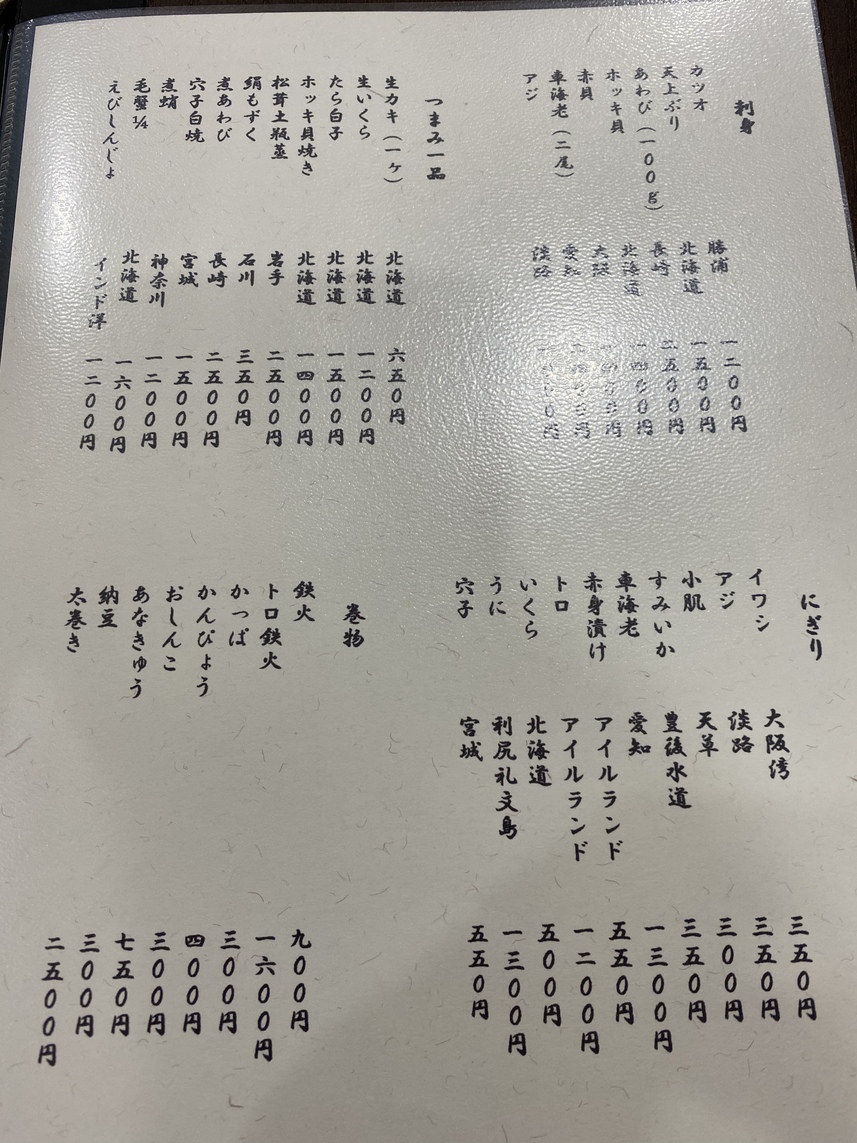 刺身
カツオ 勝浦 一二００円
天上ぶり 北海道 一五００円
あわび（一００g） 長崎 二五００円
ホッキ貝 北海道 一四００円
赤貝 大阪
車海老（二尾） 愛知
アジ 淡路
つまみ一品
生カキ（一ヶ） 北海道 六五０円
生いくら 北海道 一二００円
たら白子 北海道 一五００円
ホッキ貝焼き 北海道 一四００円
松茸土瓶蒸 岩手 二五００円
絹もずく 石川 三五０円
煮あわび 長崎 二五００円
穴子白焼 宮城 一五００円
煮蛸 神奈川 一二００円
毛蟹¼ 北海道 一六００円
えびしんじょ インド洋 一二００円
にぎり
イワシ 大阪湾 三五０円
アジ 淡路 三五０円
小肌 天草 三００円
すみいか 豊後水道 三五０円
車海老 愛知 一三００円
赤身漬け アイルランド 五五０円
トロ アイルランド 一二００円
いくら 北海道 五００円
うに 利尻礼文島 一三００円
穴子 宮城 五五０円
巻物
鉄火 九００円
トロ鉄火 一六００円
かっぱ 三００円
かんぴょう 四００円
おしんこ 三００円
あなきゅう 七五０円
納豆 三００円
太巻き 二五００円